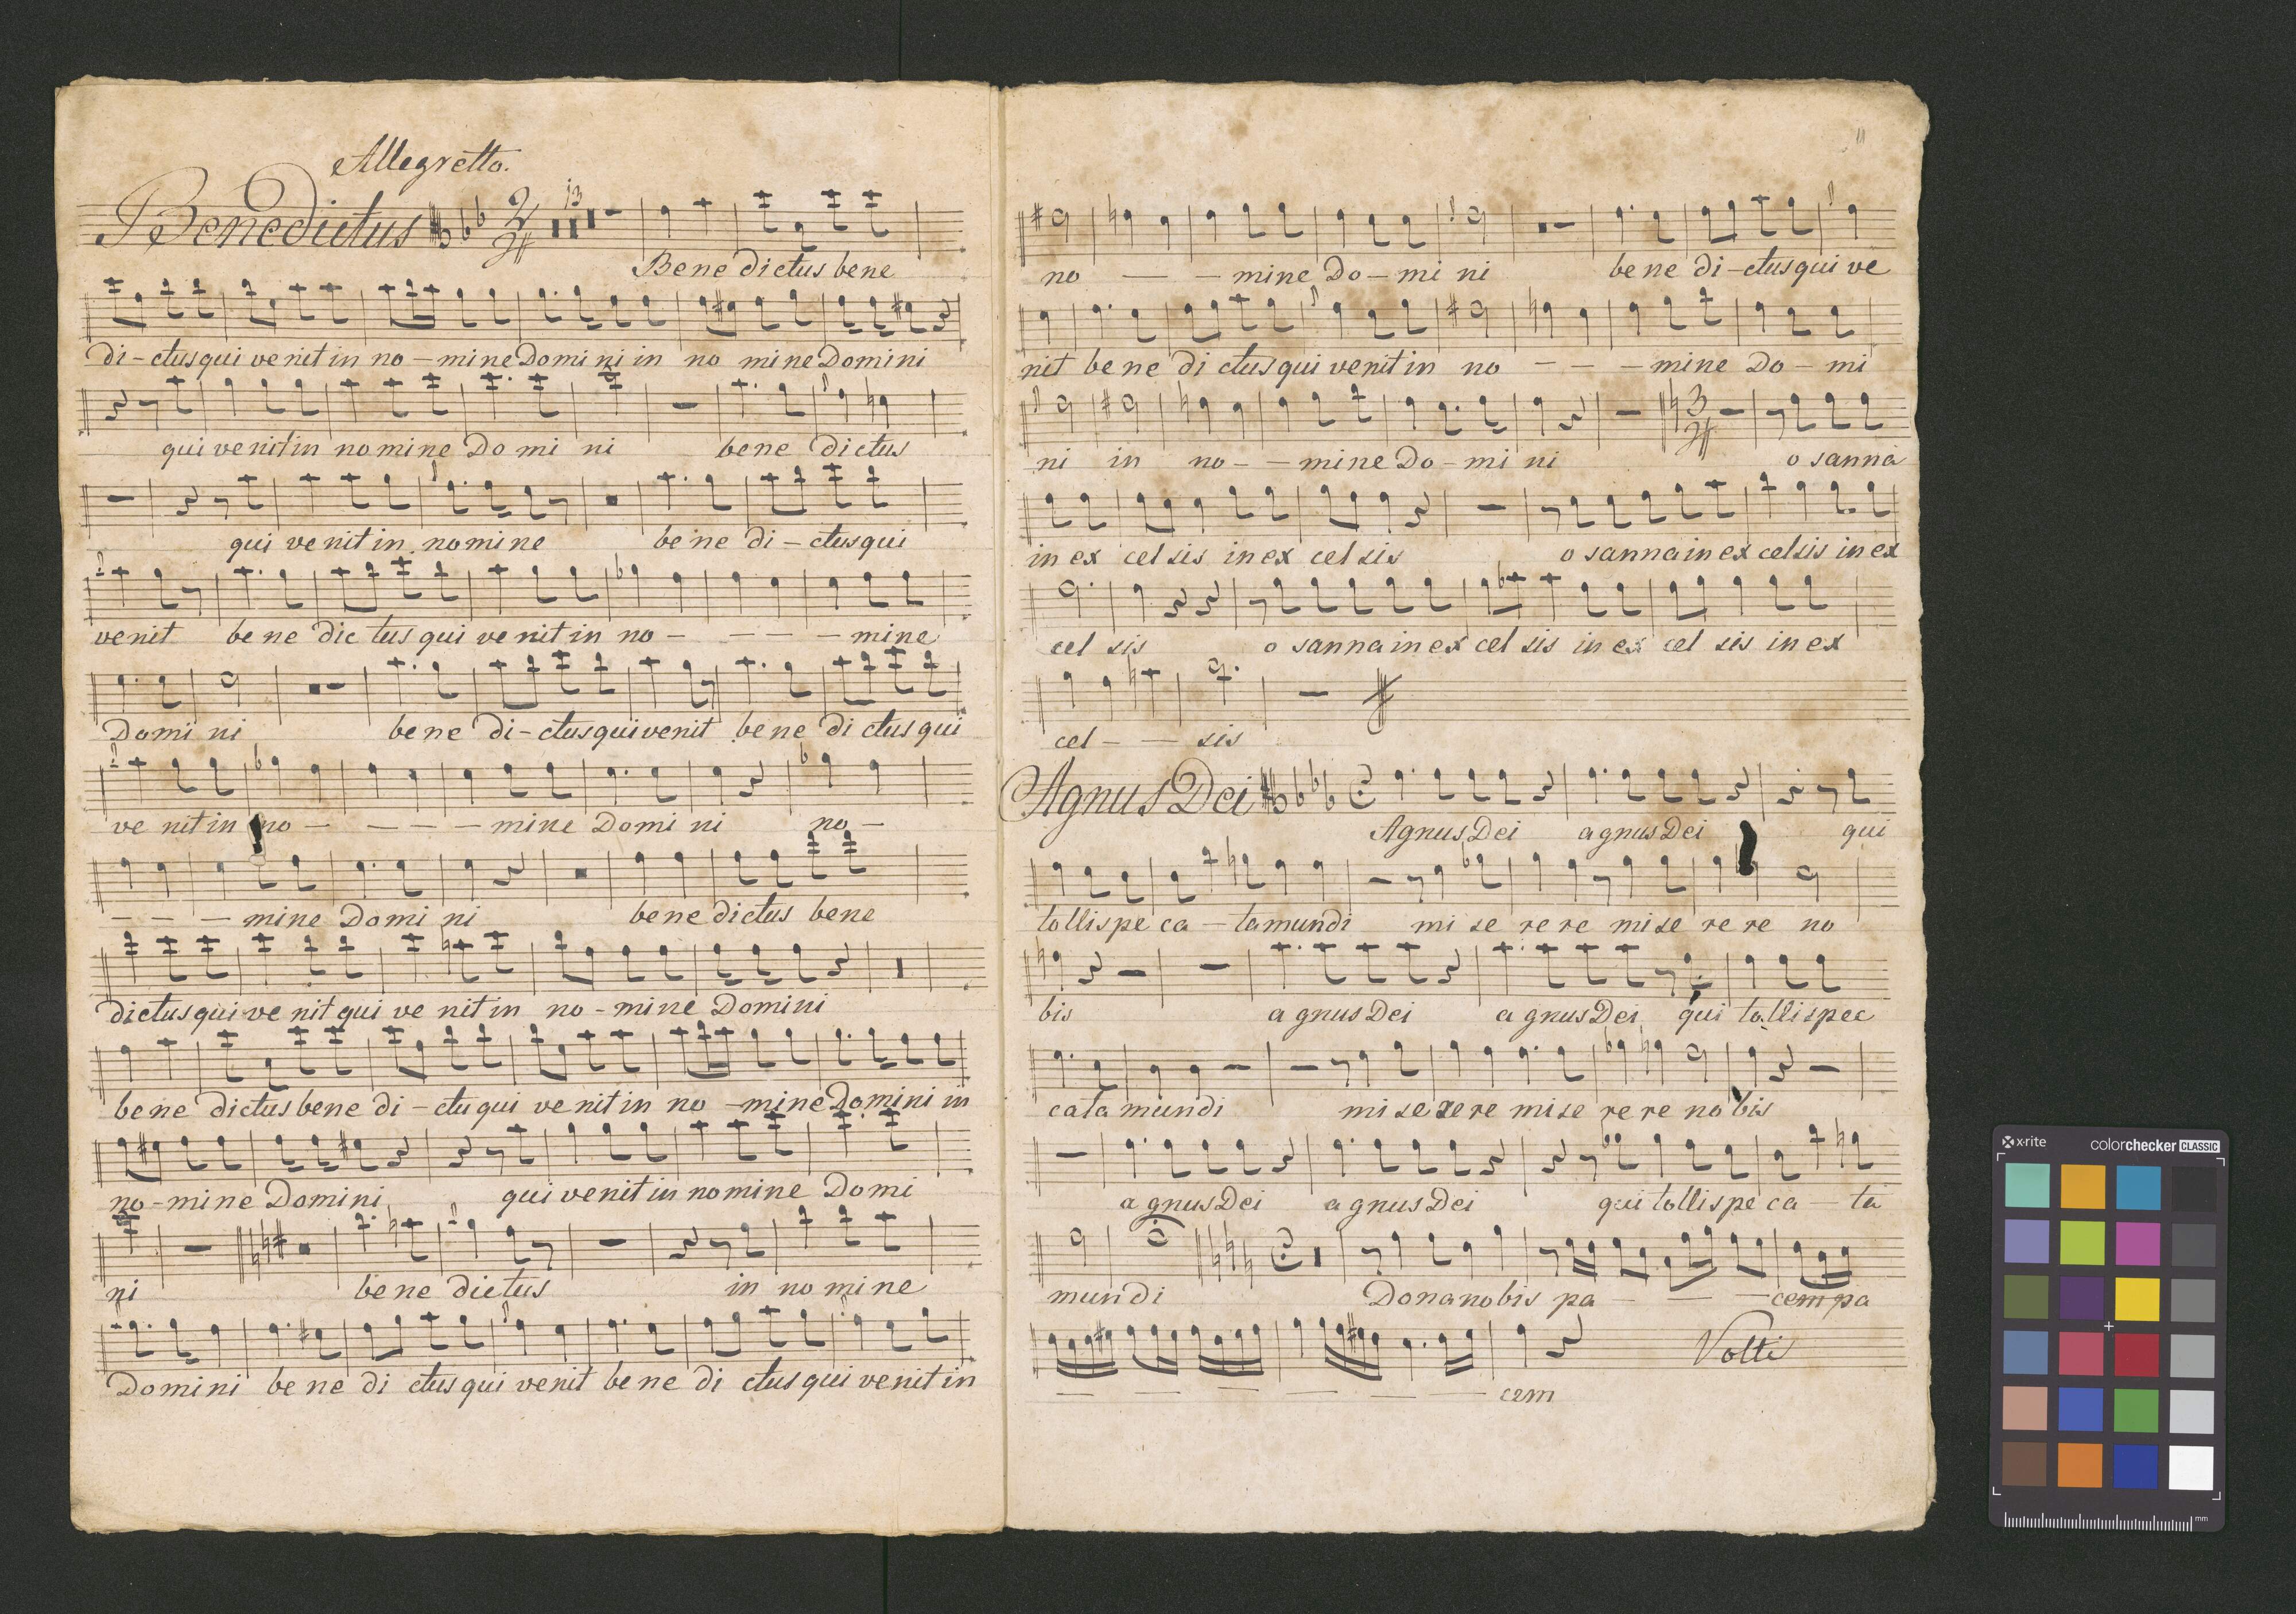 Allegretto.
Benedictus 2/4 13
Bene dictus bene
di - ctus qui venit in no - mine Domini in no mine Domini
qui venit in nomine Do mi ni bene dictus
qui venit in nomine bene di - ctus qui
venit bene dic tus qui venit in no - - - - mine
Domini ni bene di - ctus qui venit bene di ctus qui
ve nit in no - - - - mine Domi ni no -
- - - mine Domi ni bene dictus bene
dictus qui ve nit qui ve nit in no - mine Domini
bene dictus bene di - ctu qui ve nit in no - mine Domini in
no - mine Domini qui venit in nomine Domi
ni bene dictus in no mine
Domini bene di ctus qui venit bene di ctus qui venit in
11
no - - - mine Do - mi ni bene di - ctus qui ve
nit bene di ctus qui venit in no - - - mine Do - mi
ni in no - - mine Do - mi ni 3/4 o sanna
in ex celsis in ex celsis o sanna in ex celsis in ex
cel sis o sanna in ex cel sis in ex cel sis in ex
cel - - sis
Agnus Dei Agnus Dei agnus Dei qui
tollis pe ca - ta mundi mi se re re mise re re no
bis agnus Dei agnus Dei qui tollis pec
cata mundi mi se re re mise re re no bis
agnus Dei agnus Dei qui tollis pe ca - ta
mundi Dona nobis pa - - - cem pa
- - - - - - cem Volti
x-rite colorchecker CLASSIC
mm